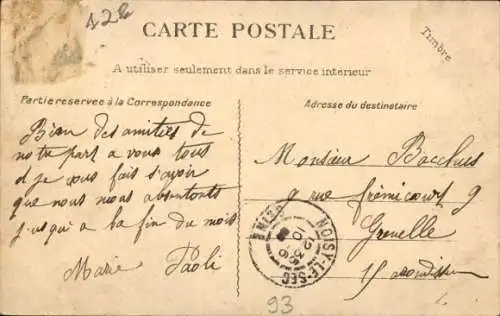 122
CARTE POSTALE
Timbre
A utiliser seulement dans le service interieur
Partie reservee à la Correspondance
Adresse du destinataire
Bien des amitiés de
notre part a vous tous
et je vous fais s'avoir
que nous nous absentons
jusqu a la fin du mois
Marie Paoli
Monsieur Bacchus
9 rue frémicourt 9
Grenelle
15 arrondissem
NOISY-LE-SEC
SEINE
93